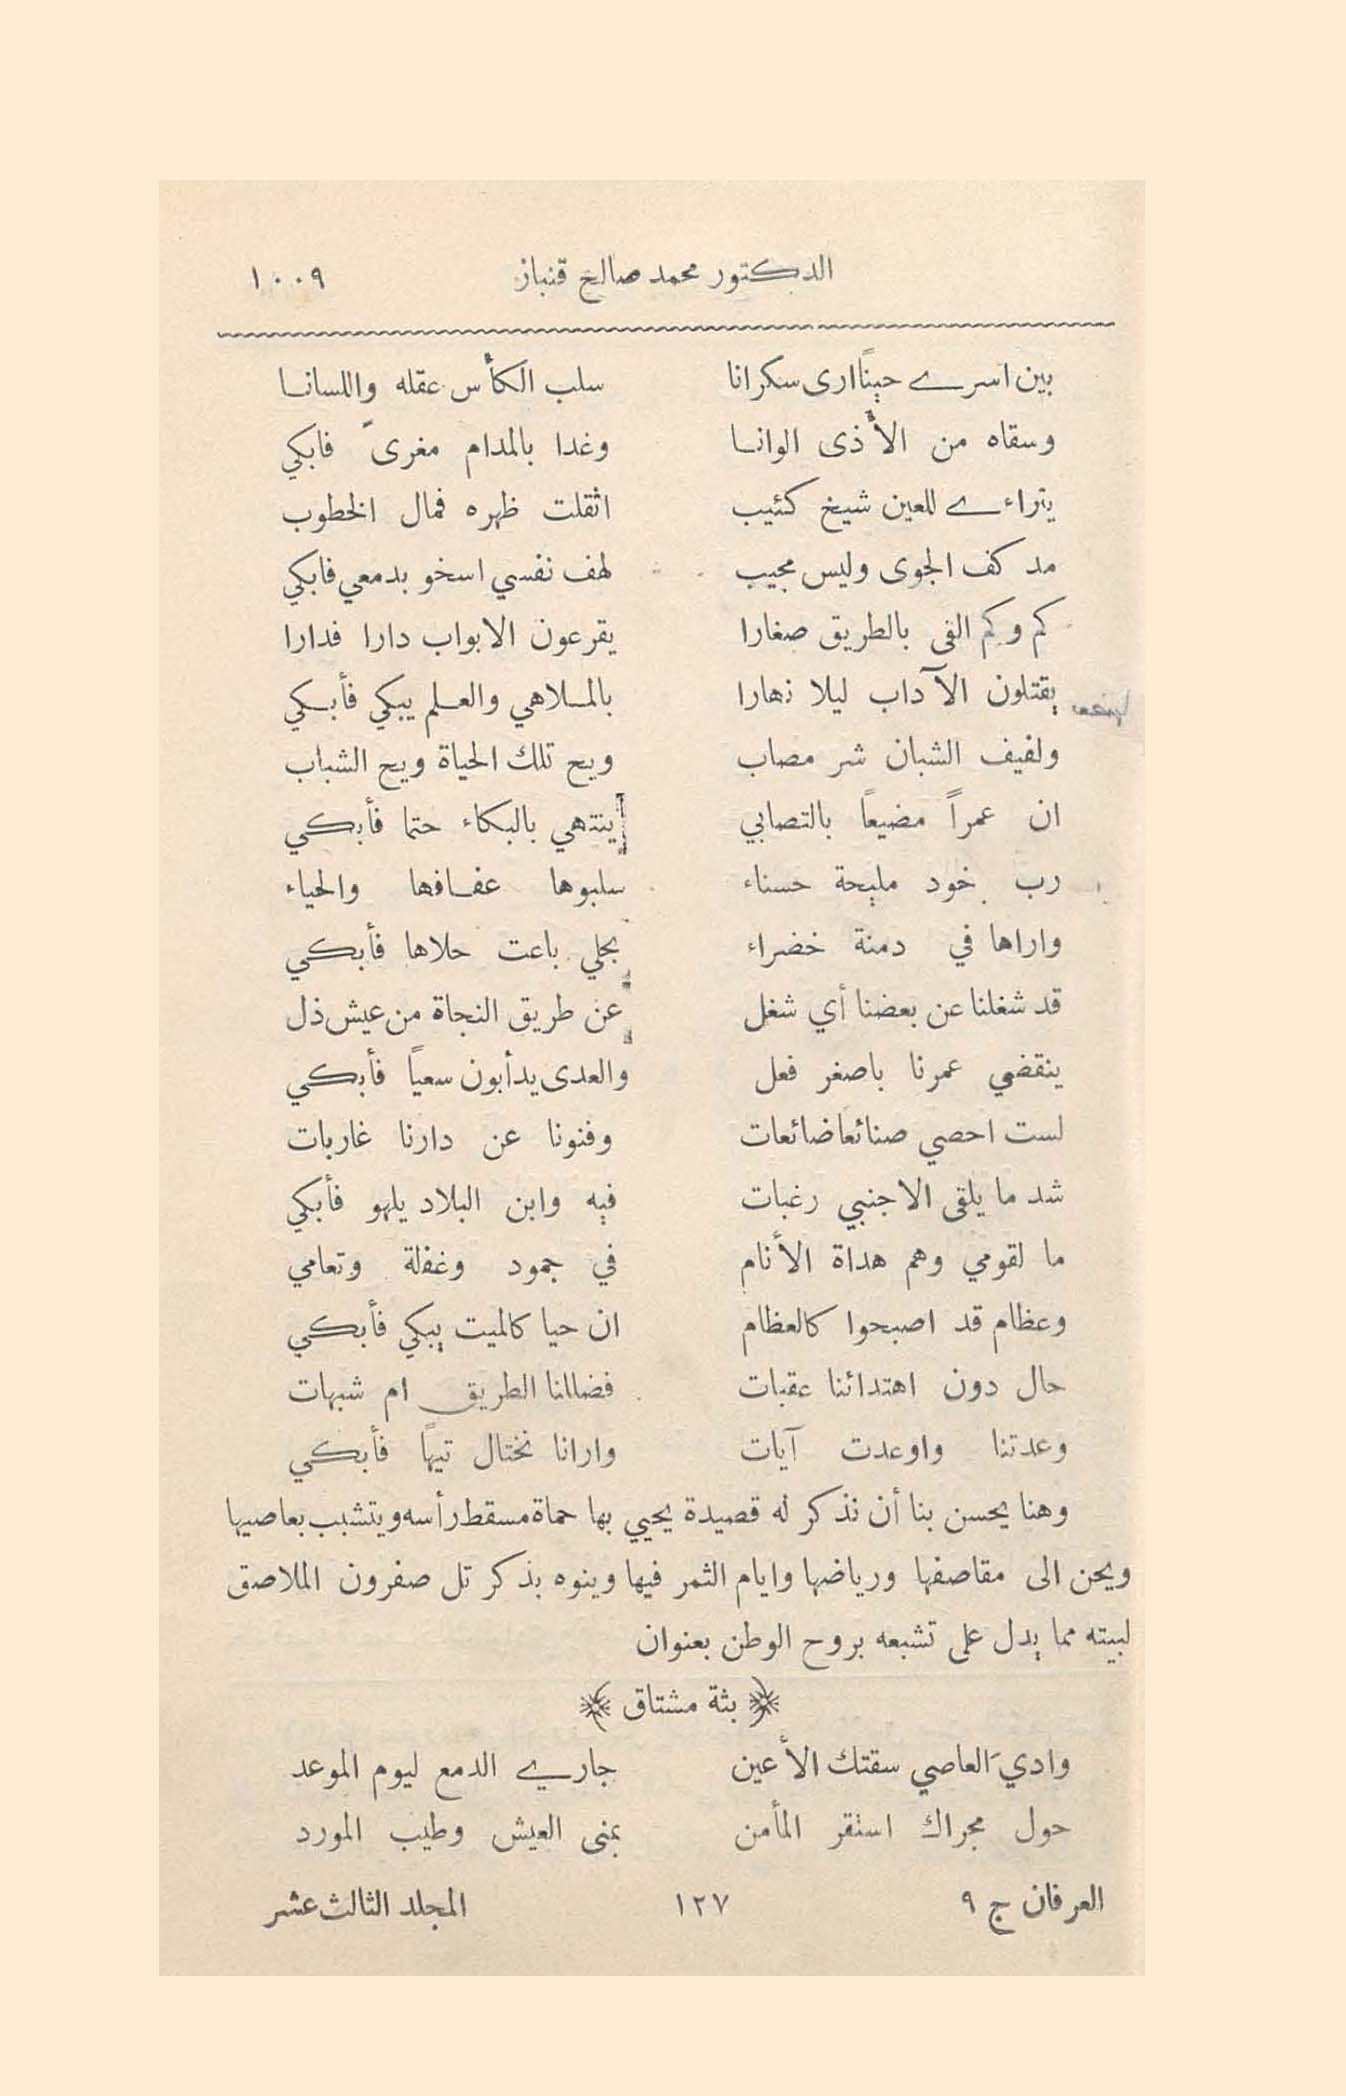 الدكتور محمد صالح قنباز ١٠٠٩
بين اسرى حيناً ارى سكرانا سلب الكأس عقله واللسانا
وسقاه من الأذى الوانا وغدا بالمدام مغرىً فابكي
يتراءى للعين شيخ كئيب اثقلت ظهره فمال الخطوب
مد كف الجوى وليس مجيب لهف نفسي اسخو بدمعي فابكي
كم وكم الفى بالطريق صغارا يقرعون الابواب دارا فدارا
يقتلون الآداب ليلا نهارا بالملاهي والعلم يبكي فأبكي
ولفيف الشبان شر مصاب ويح تلك الحياة ويح الشباب
ان عمراً مضيعاً بالتصابي ينتهي بالبكاء حتما فأبكي
رب خود مليحة حسناء سلبوها عفافها والحياء
واراها في دمنة خضراء بجلي باعت حلاها فأبكي
قد شغلنا عن بعضنا أي شغل عن طريق النجاة من عيش ذل
ينقضي عمرنا باصغر فعل والعدى يدأبون سعياً فأبكي
لست احصي صنائعا ضائعات وفنونا عن دارنا غاربات
شد ما يلقى الاجنبي رغبات فيه وابن البلاد يلهو فأبكي
ما لقومي وهم هداة الأنام في جمود وغفلة وتعامي
وعظام قد اصبحوا كالعظام ان حيا كالميت يبكي فأبكي
حال دون اهتدائنا عقبات فضللنا الطريق ام شبهات
وعدتنا واوعدت آيات وارانا نختال تيهاً فأبكي
وهنا يحسن بنا أن نذكر له قصيدة يحيي بها حماة مسقط رأسه ويتشبب بعاصيها
ويحن الى مقاصفها ورياضها وايام الثمر فيها وينوه بذكر تل صفرون الملاصق
لبيته مما يدل على تشبعه بروح الوطن بعنوان
﴿ بثة مشتاق ﴾
واديَ العاصي سقتك الأعين جاري الدمع ليوم الموعد
حول مجراك استقر المأمن بمنى العيش وطيب المورد
العرفان ج ٩ ١٢٧ المجلد الثالث عشر